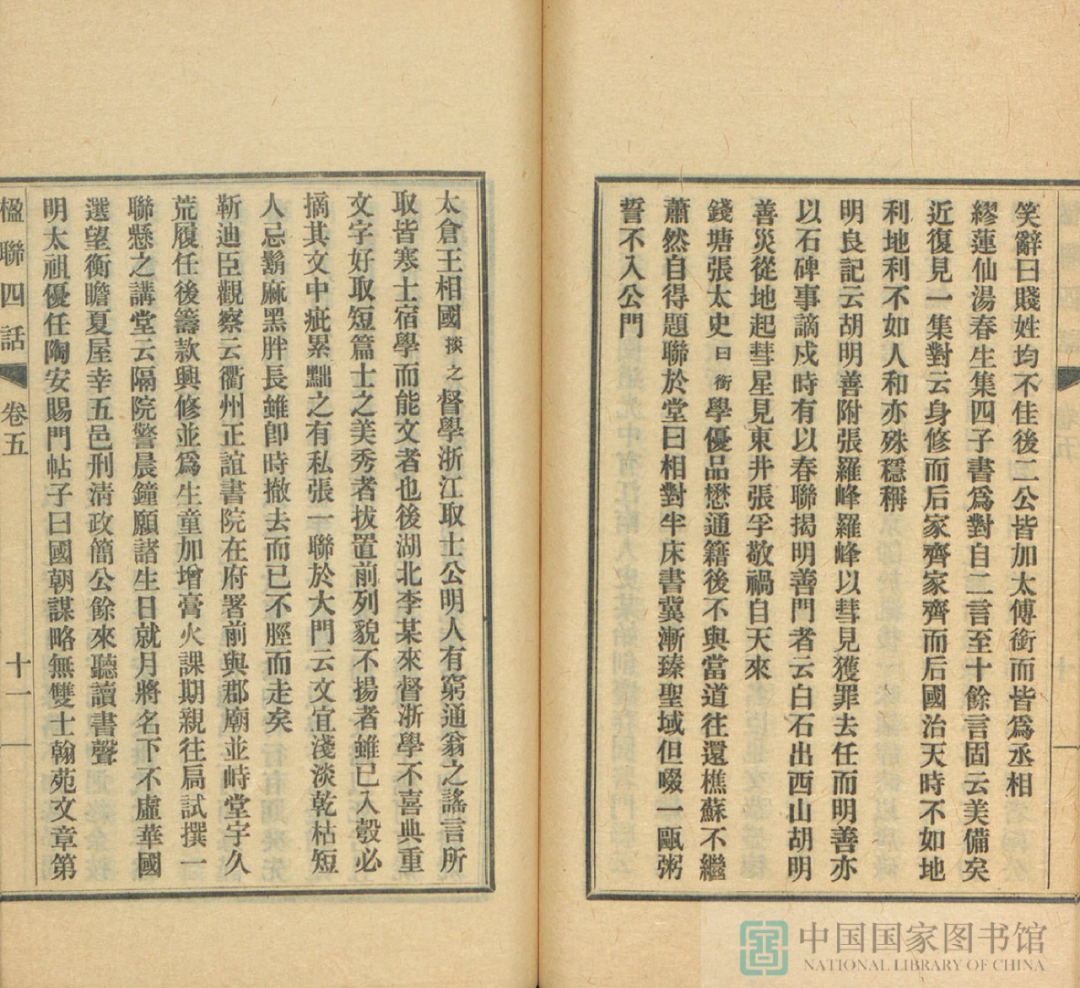 笑辭曰賤姓均不佳後二公皆加太傅銜而皆爲丞相
繆蓮仙湯春生集四子書爲對自二言至十餘言固云美備矣
近復見一集對云身修而后家齊家齊而后國治天時不如地
利地利不如人和亦殊穩稱
明良記云胡明善附張羅峰羅峰以彗見獲罪去任而明善亦
以石碑事謫戍時有以春聯揭明善門者云白石出西山胡明
善災從地起彗星見東井張孚敬禍自天來
錢塘張太史曰衡學優品懋通籍後不與當道往還樵蘇不繼
蕭然自得題聯於堂曰相對半床書冀漸臻聖域但啜一甌粥
誓不入公門
太倉王相國掞之督學浙江取士公明人有窮通翁之謠言所
取皆寒士宿學而能文者也後湖北李某來督浙學不喜典重
文字好取短篇士之美秀者拔置前列貌不揚者雖已入彀必
摘其文中疵累黜之有私張一聯於大門云文宜淺淡乾枯短
人忌鬍麻黑胖長雖卽時撤去而已不脛而走矣
靳迪臣觀察云衢州正誼書院在府署前與郡廟並峙堂宇久
荒履任後籌款興修並爲生童加增膏火課期親往局試撰一
聯懸之講堂云隔院警晨鐘願諸生日就月將名下不虛華國
選望衡瞻夏屋幸五邑刑清政簡公餘來聽讀書聲
明太祖優任陶安賜門帖子曰國朝謀略無雙士翰苑文章第
楹聯四話
卷五
十一
中国国家图书馆
NATIONAL LIBRARY OF CHINA